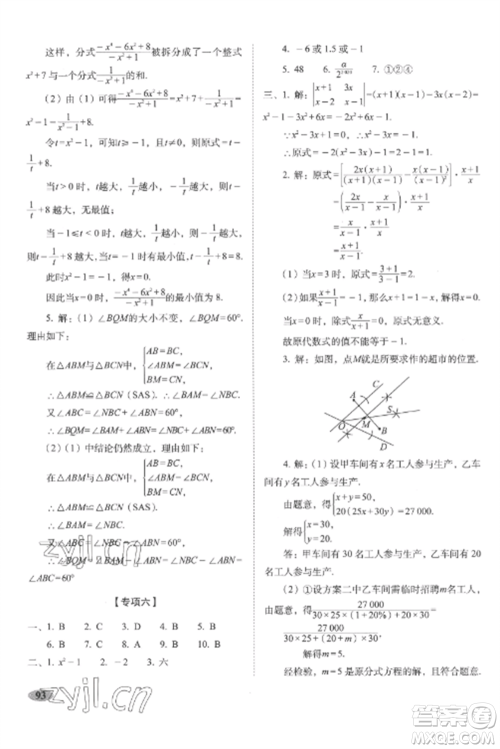 这样，分式(-x⁴-6x²+8)/(-x²+1)被拆分成了一个整式
x²+7与一个分式1/(-x²+1)的和.
(2)由(1)可得(-x⁴-6x²+8)/(-x²+1)=x²+7+1/(-x²+1)=
x²-1-1/(x²-1)+8.
令t=x²-1，则t≥-1，且t≠0，则原式=t-
1/t+8.
当t>0时，t越大，1/t越小，-1/t越大，则t-
1/t+8越大，无最值；
当-1≤t<0时，t越大，1/t越小，-1/t越大，
则t-1/t+8越大，当t=-1时有最小值，t-1/t+8=8.
此时x²-1=-1，得x=0.
因此当x=0时，(-x⁴-6x²+8)/(-x²+1)有最小值8.
5. 解：(1)∠BQM的大小不变，∠BQM=60°.
理由如下：
在△ABM与△BCN中，{AB=BC, ∠ABM=∠BCN, BM=CN,
∴△ABM≌△BCN(SAS). ∴∠BAM=∠NBC.
又∵∠NBC+∠ABN=60°，
∴∠BQM=∠BAM+∠ABN=60°.
(2)(1)中结论仍然成立，理由如下：
在△ABM与△BCN中，{AB=BC, ∠ABM=∠BCN, BM=CN,
∴△ABM≌△BCN(SAS). ∴∠BAM=∠NBC.
【专项六】
一、1. B 2. C 3. A 4. C 5. B
6. B 7. D 8. B 9. B 10. B
二、1. x²-1 2. -2 3. 六
93
4. -6或1.5或-1
5. 48 7. ①②④
三、1. 解：|x+1 3x; x-2 x-1|=(x+1)(x-1)-3x(x-2)=
∴原式=-2+6-1=3.
2. 解：原式=[2x(x+1)/((x+1)(x-1))-x(x-1)/(x-1)²]·(x+1)/x
=(2x/(x-1)-x/(x-1))·(x+1)/x
=x/(x-1)·(x+1)/x
=(x+1)/(x-1).
(1)当x=3时，原式=(3+1)/(3-1)=2.
(2)如果(x+1)/(x-1)=-1，那么x+1=-x+1，解得x=0.
当x=0时，除式x/(x+1)=0，原式无意义.
故原代数式的值不能等于-1.
3. 解：如图，点M就是所要求作的超市的位置.
A
C
O
M
S
B
4. 解：(1)设甲车间有x名工人参与生产，乙车
间有y名工人参与生产.
由题意，得{x+y=50, 20(25x+30y)=27 000.
解得{x=30, y=20.
答：甲车间有30名工人参与生产，乙车间有20
名工人参与生产.
(2)①设方案二中乙车间需临时招聘m名工人.
由题意，得27 000/(30×25×(1+20%)+20×30)=
27 000/(30×25+(20+m)×30).
解得m=5.
经检验，m=5是原分式方程的解，且符合题意.
zyjl.cn
zyjl.cn
作业精灵
答案圈
MXQE.COM